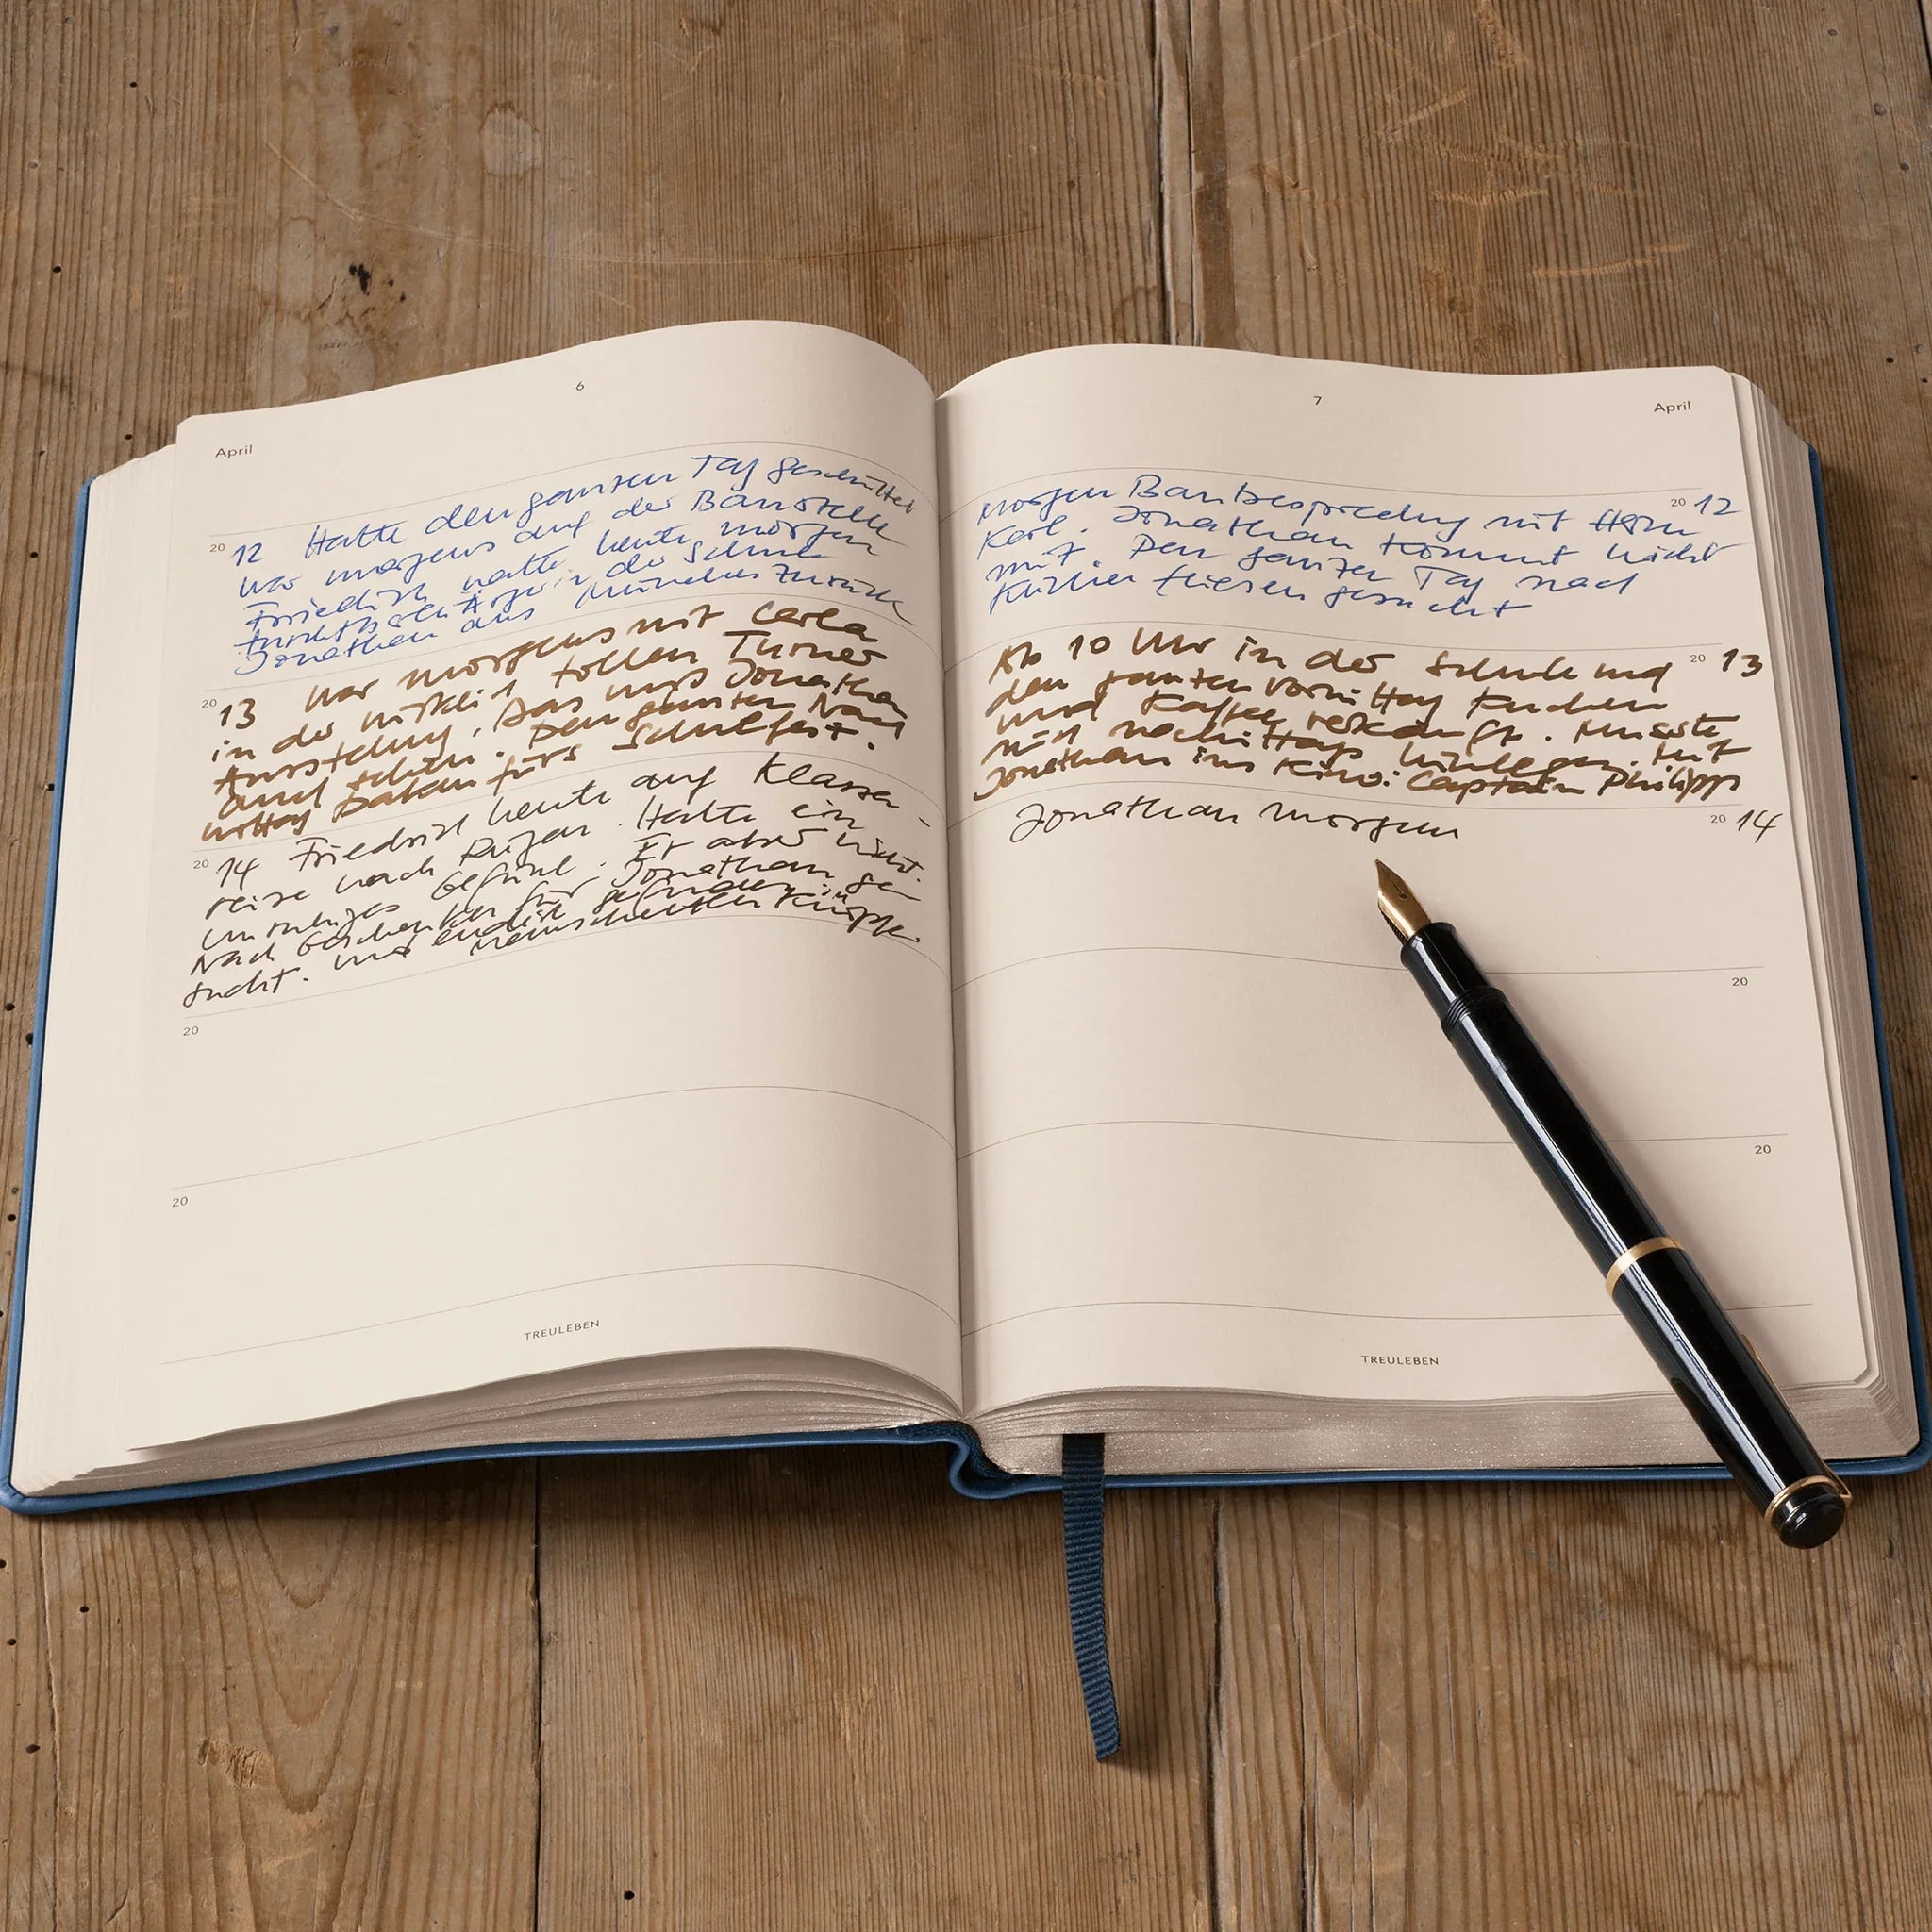 6
April
20 12 Hatte den ganzen Tag geschüttet
War morgens auf der Baustelle
Friedrich hatte heute morgen
furchtbaren Ärger in der Schule
Jonathan aus München zurück
20 13 War morgens mit Carla
in der wirklich tollen Turner
Ausstellung. Das muß Jonathan
auch sehen. Den ganzen Nach
mittag Backen fürs Schulfest.
20 14 Friedrich heute auf Klassen-
reise nach Rügen. Hatte ein
unruhiges Gefühl. Er aber nicht.
Nach Geschenken für Jonathan ge
sucht. Und endlich gefunden:
Manschettenknöpfe.
20
20
TREULEBEN
7
April
Morgen Baubesprechung mit Herrn 20 12
Kerl. Jonathan kommt nicht
mit. Den ganzen Tag nach
Fliesen gesucht
Ab 10 Uhr in der Schule und 20 13
den ganzen Vormittag Kuchen
und Kaffee verkauft. Musste
mich nachmittags hinlegen. Mit
Jonathan ins Kino: Captain Philipps
Jonathan morgen 20 14
20
20
TREULEBEN